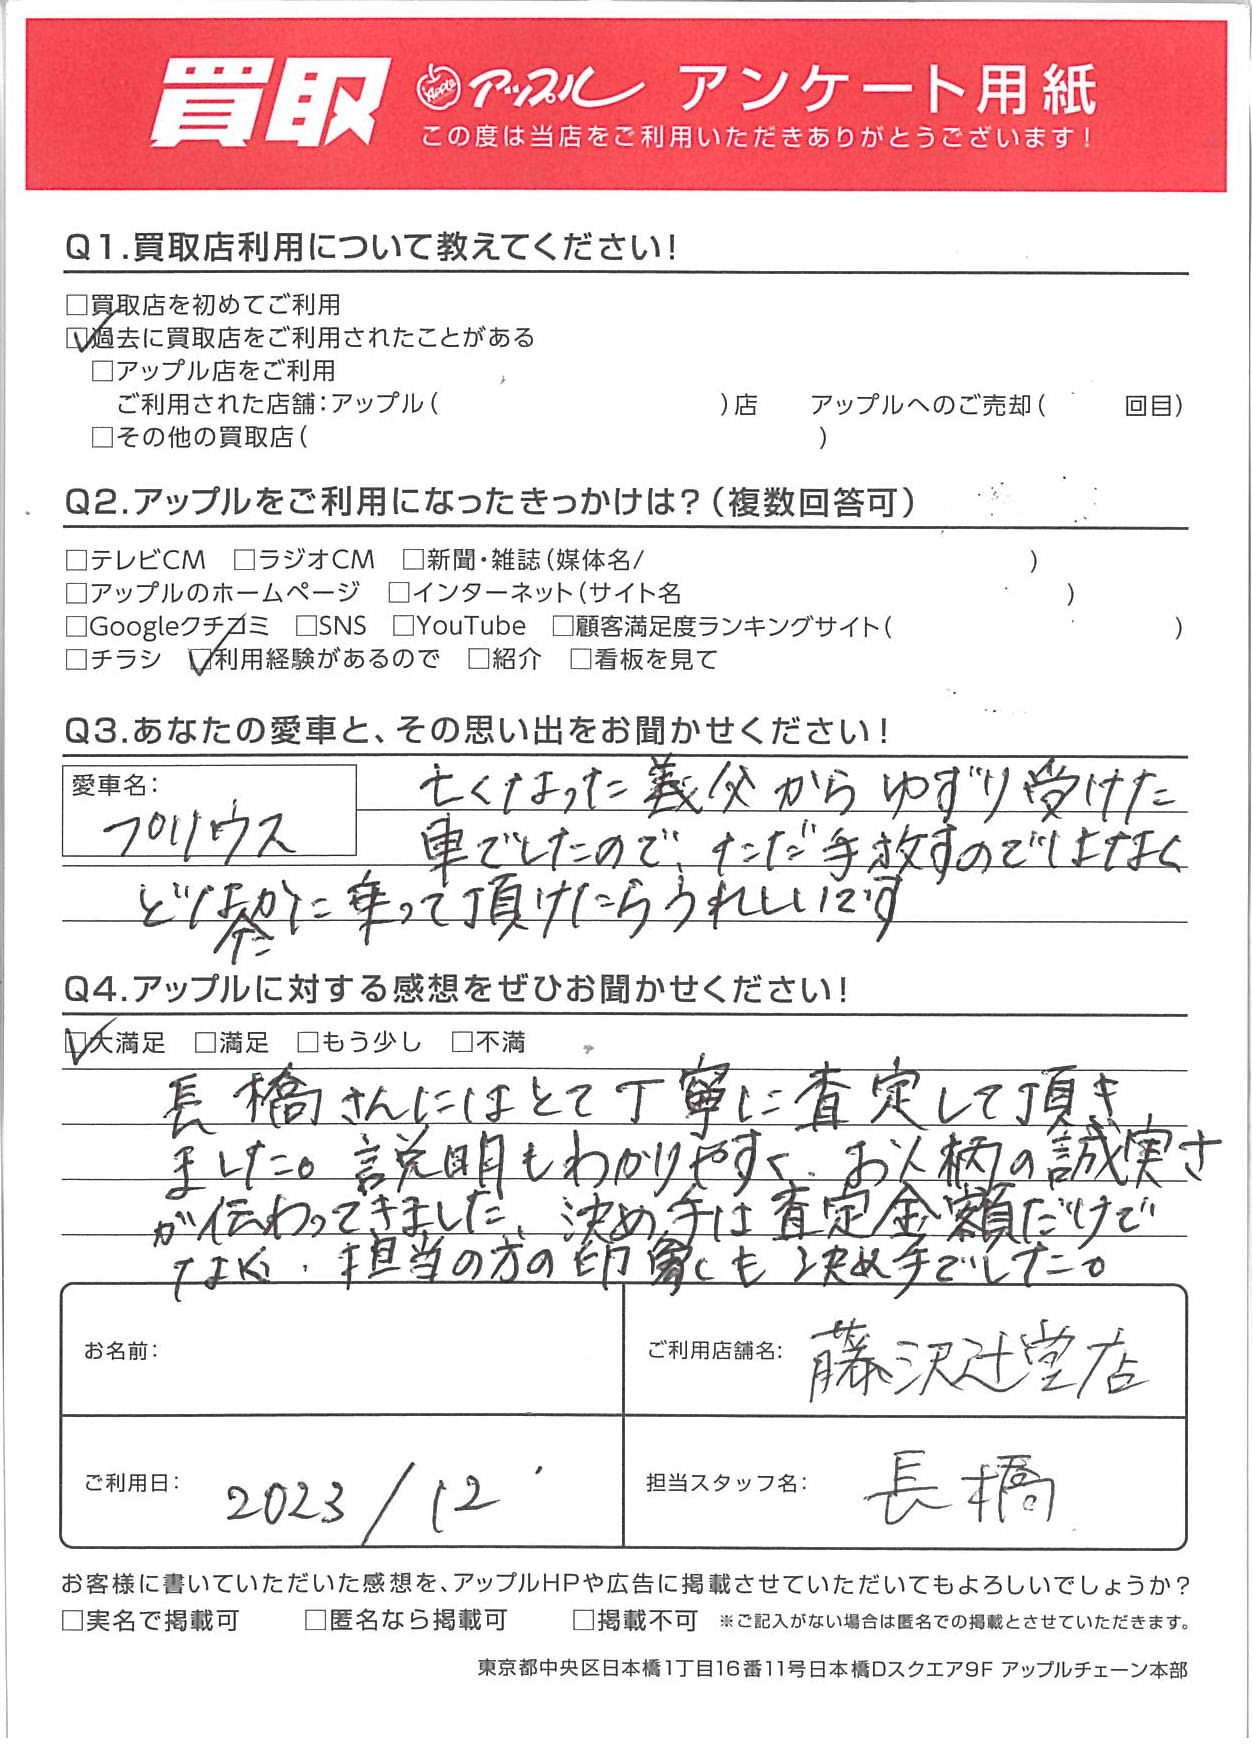 買取 Apple アップル アンケート用紙
この度は当店をご利用いただきありがとうございます！
Q1.買取店利用について教えてください！
□買取店を初めてご利用
☑過去に買取店をご利用されたことがある
□アップル店をご利用
ご利用された店舗：アップル（ ）店 アップルへのご売却（ 回目）
□その他の買取店（ ）
Q2.アップルをご利用になったきっかけは？（複数回答可）
□テレビCM □ラジオCM □新聞・雑誌（媒体名/ ）
□アップルのホームページ □インターネット（サイト名 ）
□Googleクチコミ □SNS □YouTube □顧客満足度ランキングサイト（ ）
□チラシ ☑利用経験があるので □紹介 □看板を見て
Q3.あなたの愛車と、その思い出をお聞かせください！
愛車名：
プリウス
亡くなった義父からゆずり受けた
車でしたので、ただ手放すのではなく
どなたかに乗って頂けたらうれしいです
Q4.アップルに対する感想をぜひお聞かせください！
☑大満足 □満足 □もう少し □不満
長橋さんにはとて丁寧に査定して頂き
ました。説明もわかりやすく、お人柄の誠実さ
が伝わってきました、決め手は査定金額だけで
なく、担当の方の印象も決め手でした。
お名前：
ご利用店舗名： 藤沢辻堂店
ご利用日： 2023/12
担当スタッフ名： 長橋
お客様に書いていただいた感想を、アップルHPや広告に掲載させていただいてもよろしいでしょうか？
□実名で掲載可 □匿名なら掲載可 □掲載不可 ※ご記入がない場合は匿名での掲載とさせていただきます。
東京都中央区日本橋1丁目16番11号日本橋Dスクエア9F アップルチェーン本部